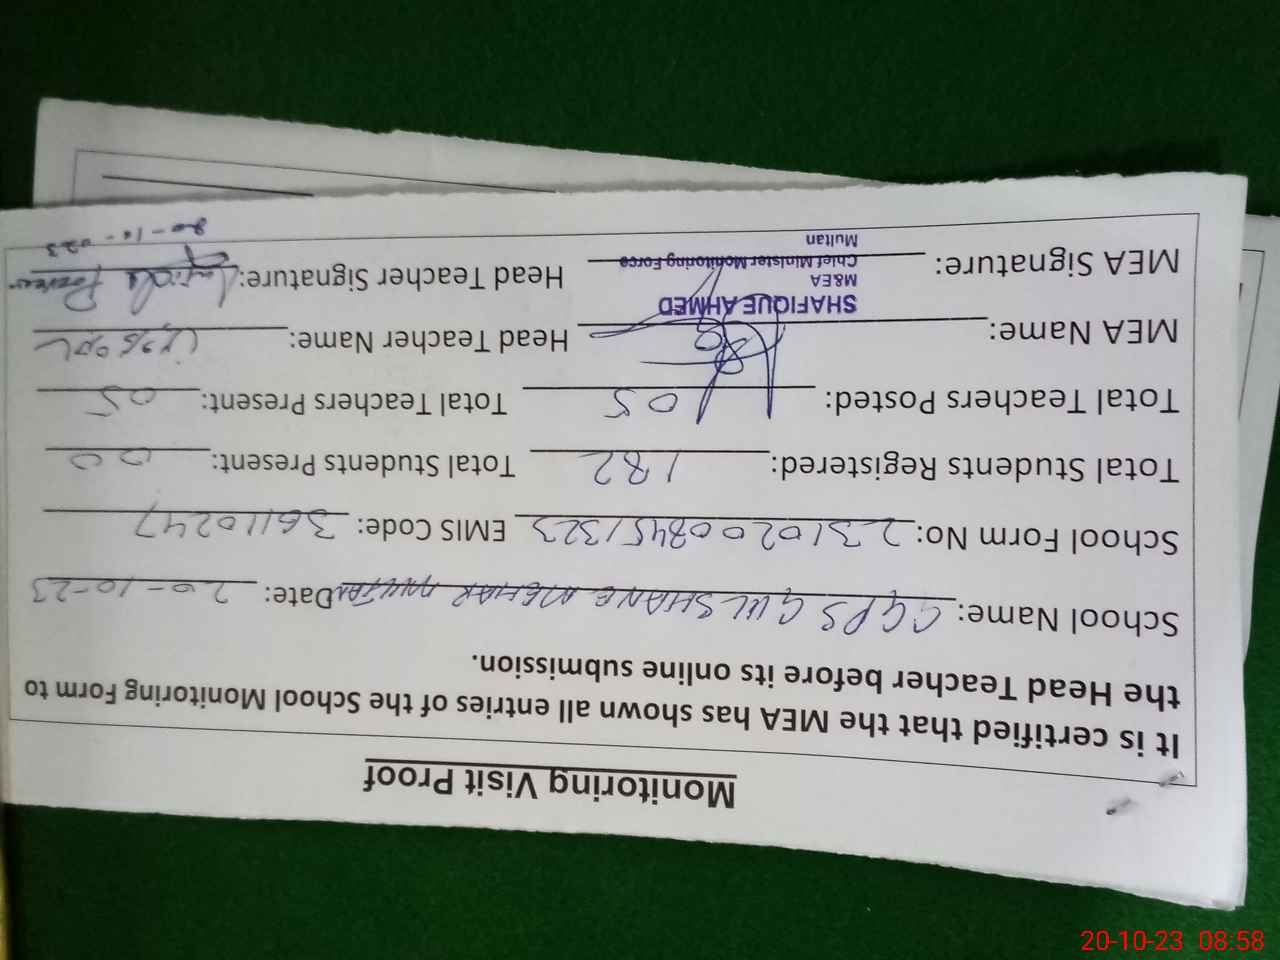 Monitoring Visit Proof
It is certified that the MEA has shown all entries of the School Monitoring Form to
the Head Teacher before its online submission.
School Name: GGPS GULSHANE MEHAR MULTAN Date: 20-10-23
School Form No: 23102008451323 EMIS Code: 36110247
Total Students Registered: 182 Total Students Present: 00
Total Teachers Posted: 05 Total Teachers Present: 05
MEA Name: Head Teacher Name:
SHAFIQUE AHMED
M&EA
Chief Minister Monitoring Force
Multan
MEA Signature: Head Teacher Signature:
20-10-023
20-10-23 08:58